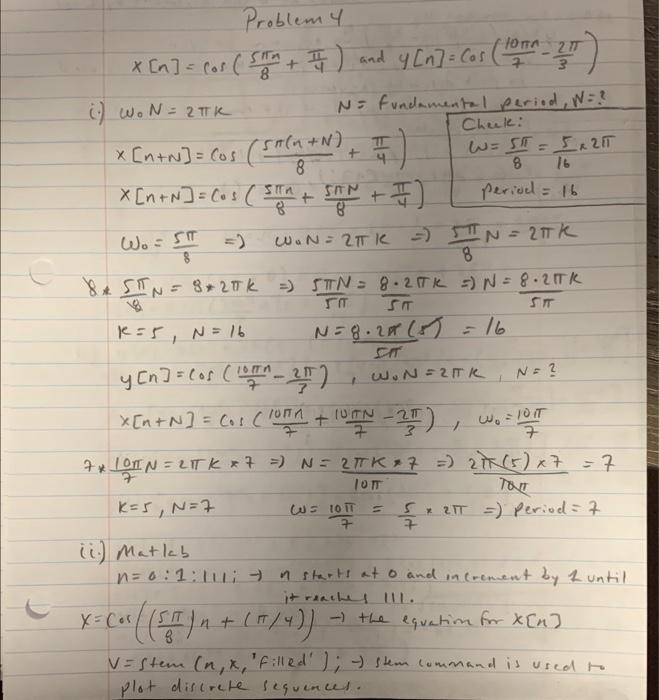 Problem 4
x[n] = cos(5πn/8 + π/4) and y[n] = cos(10πn/7 - 2π/3)
i.) ω₀N = 2πk N = fundamental period, N = ?
Check:
x[n+N] = cos(5π(n+N)/8 + π/4) ω = 5π/8 = 5/16 * 2π
x[n+N] = cos(5πn/8 + 5πN/8 + π/4] period = 16
ω₀ = 5π/8 => ω₀N = 2πk => 5π/8 N = 2πk
8 * 5π/8 N = 8 * 2πk => 5πN/5π = 8·2πk/5π => N = 8·2πk/5π
k = 5, N = 16 N = 8·2π(5)/5π = 16
y[n] = cos(10πn/7 - 2π/3), ω₀N = 2πk, N = ?
x[n+N] = cos(10πn/7 + 10πN/7 - 2π/3), ω₀ = 10π/7
7 * 10π/7 N = 2πk * 7 => N = 2πk * 7/10π => 2π(5) * 7/10π = 7
k = 5, N = 7 ω = 10π/7 = 5/7 * 2π => period = 7
ii.) Matlab
n = 0:1:111; → n starts at 0 and increment by 1 until
it reaches 111.
x = cos((5π/8)n + (π/4)) → the equation for x[n]
V = stem(n,x,'filled'); → stem command is used to
plot discrete sequences.